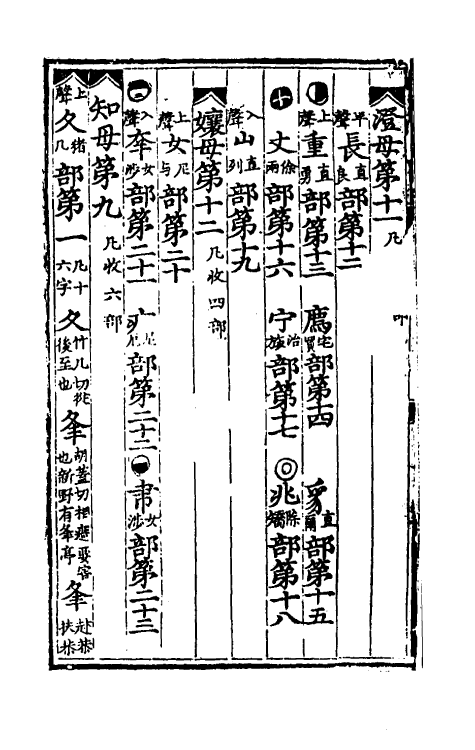 澄母第十一凡
平聲長直良部第十二
上聲重直勇部第十三 廌宅買部第十四 豸直爾部第十五
丈徐兩部第十六 宁治旅部第十七 兆除矯部第十八
入聲屮直列部第十九
孃母第十二凡收四部
上聲女尼与部第二十
入聲㚔女涉部第二十一 疒尼厄部第二十二 肀女涉部第二十三
知母第九凡收六部
上聲夂猪几部第一凡十六字 夂竹几切從後至也 夆胡蓋切相遮要害也新野有夆亭 夆